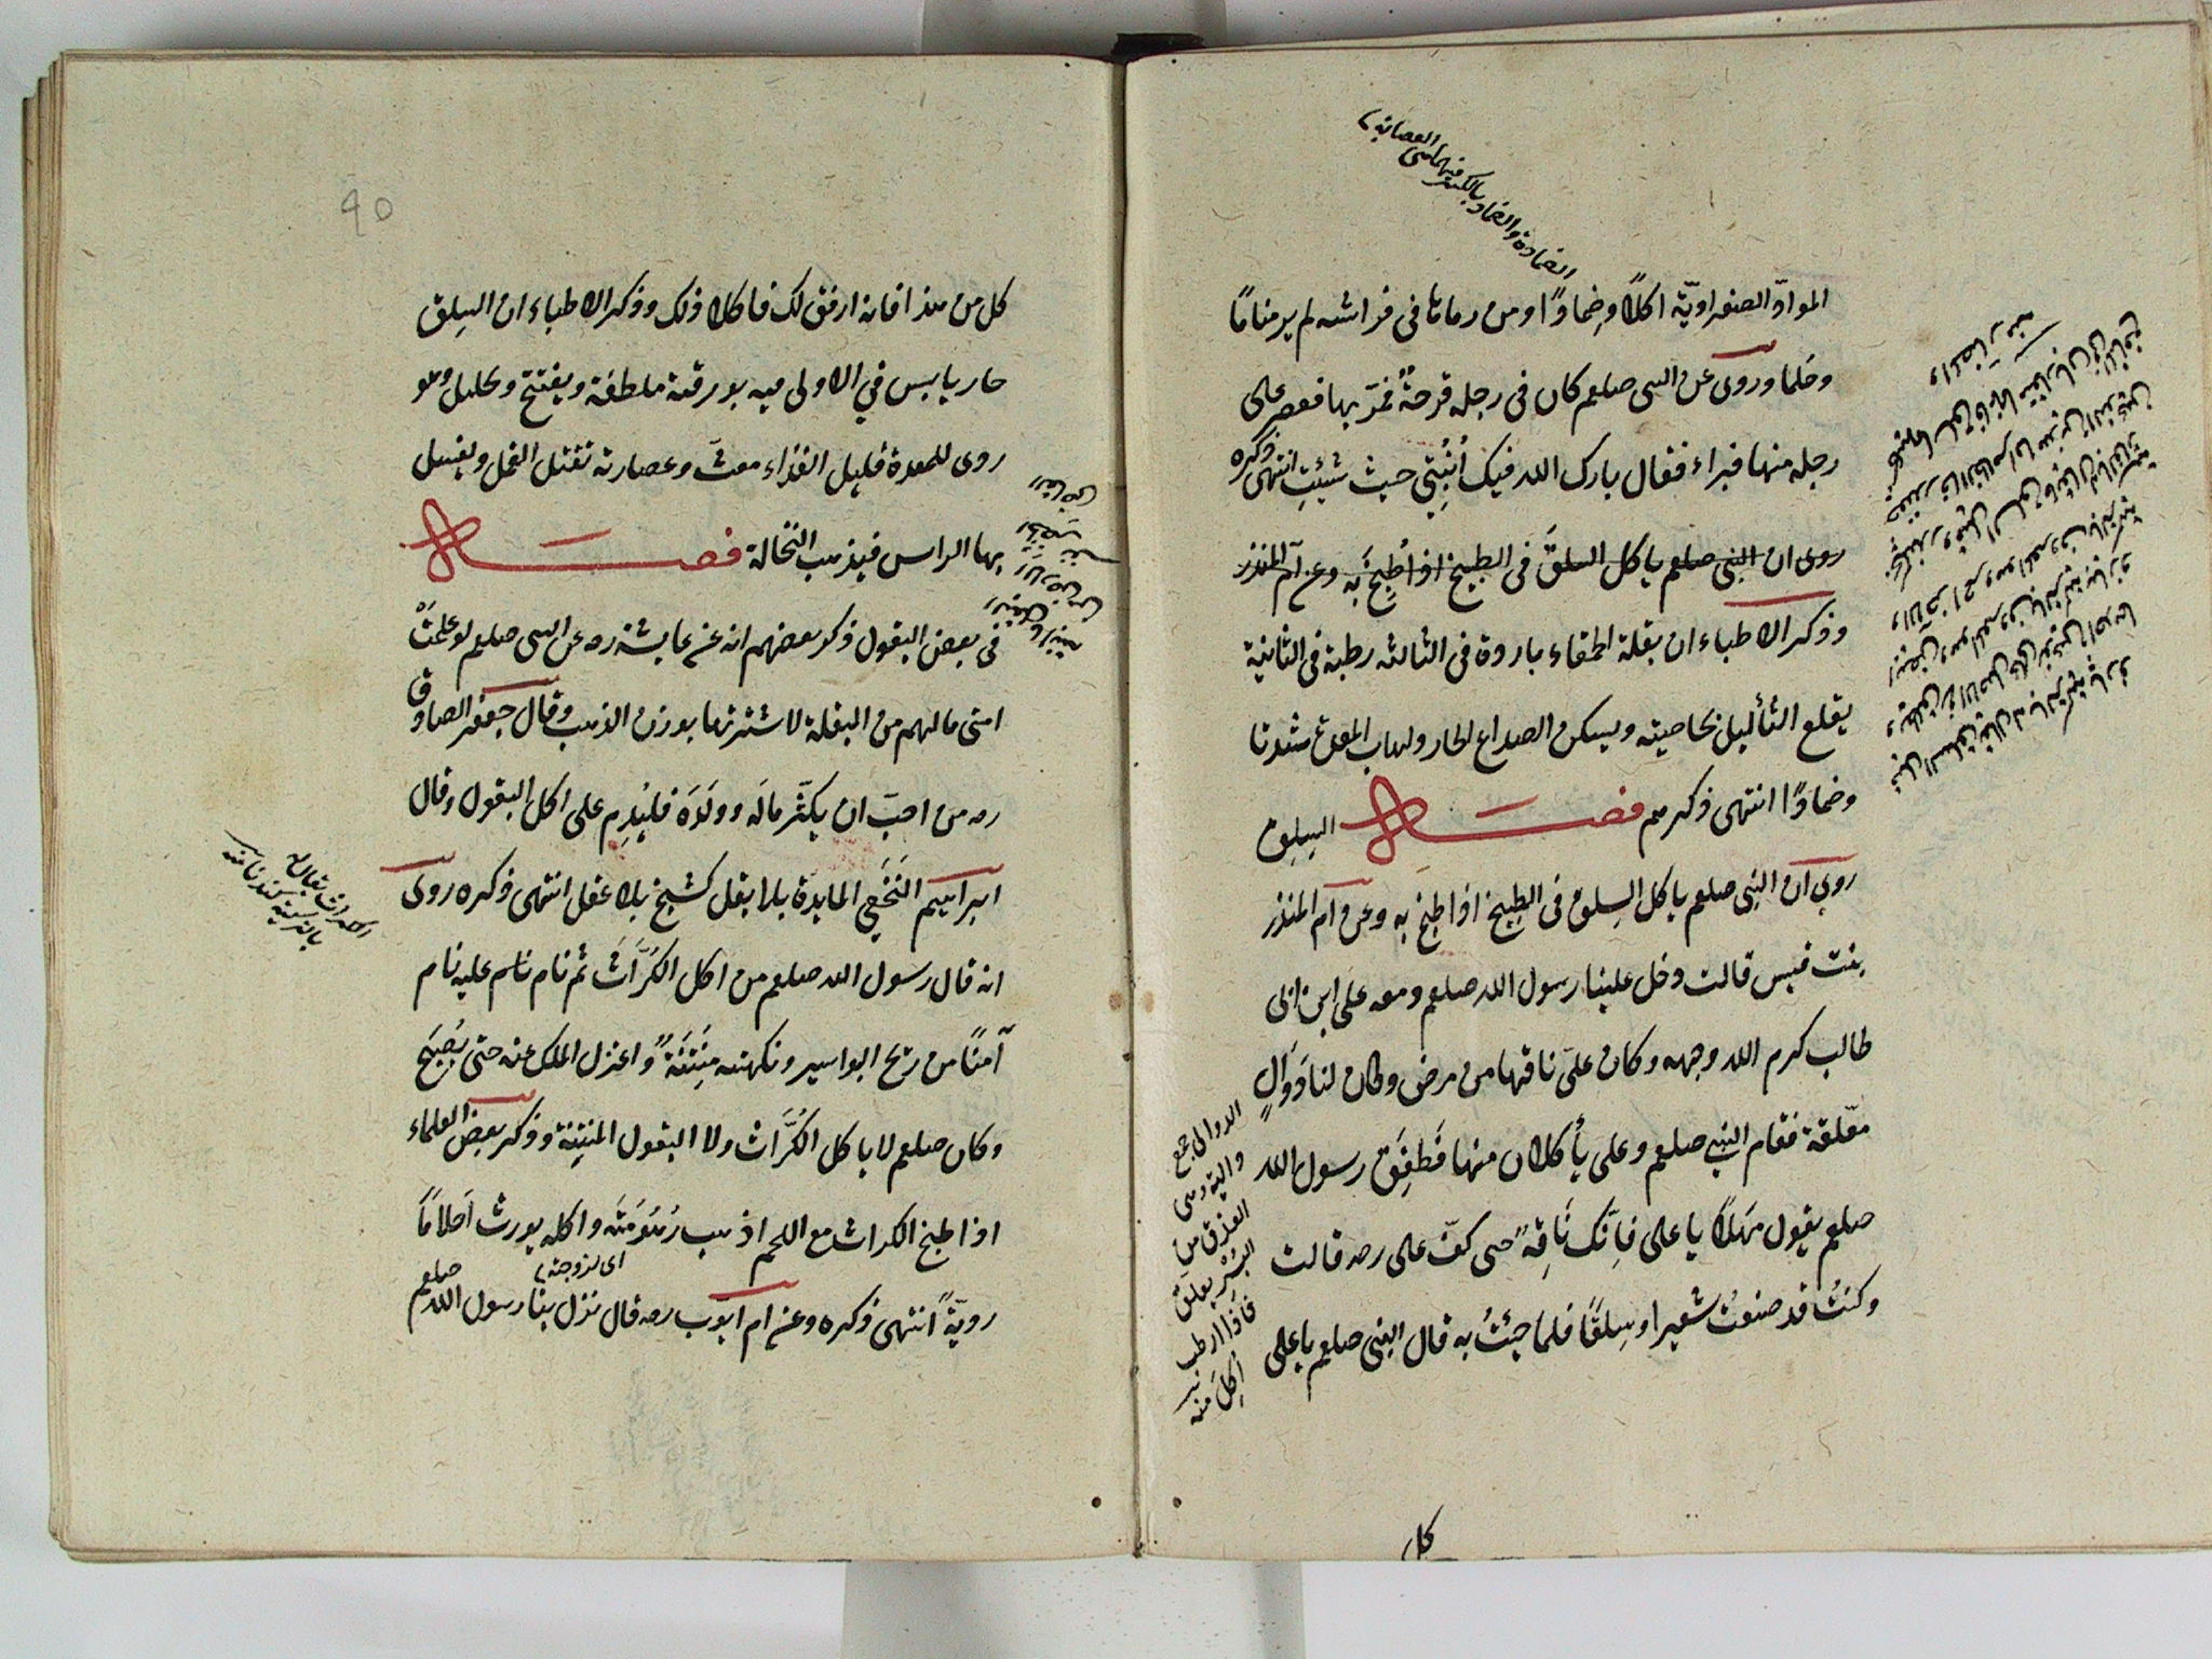 الضمادة والضماد بالكسر فيهما هي العصابة
الموادّ الصفراويّة اكلًا وضمادًا ومن رماها في فراشه لم ير مناما
وحلما وروى عن النبى صلعم كان فى رجله قرحةٌ فمرّ بها فعصر على
رجله منها فبراء فقال بارك الله فيك اُنْبُتِي حيث شئتِ انتهى ذكره
روى ان النبى صلعم ياكل السلق فى الطبيخ اذا طُبِخَ به وعن ام المنذر
وذكر الاطباء ان بقلة الحمقاء باردة فى الثالثه رطبة فى الثانية
يقلع الثأليل بخاصيته ويسكن الصداع الحار ولهاب المعدة شدتا
وضمادًا انتهى ذكرهم فصل السِلِق
روى ان النبى صلعم ياكل السِلق فى الطبيخ اذا طبخ به وعن ام المنذر
بنت قيس قالت دخل علينا رسول الله صلعم ومعه على ابن ابى
طالب كرم الله وجهه وكان علىّ ناقها من مرض وكان لنا دَوَالٍ
معلّقة فقام النبى صلعم وعلى يأكلان منها فَطَفِقَ رسول الله
صلعم يقول مَهلًا يا على فاِنّك نَاقِهٌ حتى كفّ على رضه قالت
وكنتُ قد صنعتُ شعيرا وسِلقًا فلما جئتُ به قال النبى صلعم يا على
الدوالى جمع
دالية وهى
العذق من
البُسْر يعلق
فاذا ارطب
اُكِلَ منه
كل
كل من هذا فانه ارفق لك فاكلا ذلك وذكر الاطباء ان السِلق
حار يابس في الاولى فيه بورقية ملطفة ويفتتح وتحليل وهو
روى للمعدة قليل الغذاء مغث وعصارته تقتل القمل ويغسل
بها الراس فيذهب النخالة فصل
فى بعض البقول ذكر بعضهم انه عن عايشة رضه عن النبى صلعم لو علمتْ
امتى مالهم من البقلة لاشترتها بوزن الذهب وقال جعفر الصادق
رضه من احبّ ان يكثّر مالَه وولَدَه فليُدِم على اكل البقول وقال
ابراهيم النَخَعِي المايدة بلا بقل كشيخ بلا عقل انتهى ذكره روى
انه قال رسول الله صلعم من اكل الكُرَّاثَ ثم نام عليه نام
آمنًا من ريح البواسير ونكهته مِنتَنَةٌ واعتزل الملك عنه حتى يُصْبَح
وكان صلعم لا ياكل الكُرَّاث ولا البقول المنتِنة وذكر بعض العلماء
اذا طبخ الكراث مع اللحم اذهب زهُومَتَه واكله يورث اَحلامًا
رديّةً انتهى ذكره وعن ام ايوّب رضه قال نزل بنا رسول الله صلعم
اى لزوجته
الكراث يقال له
بالتركية كندنا منه